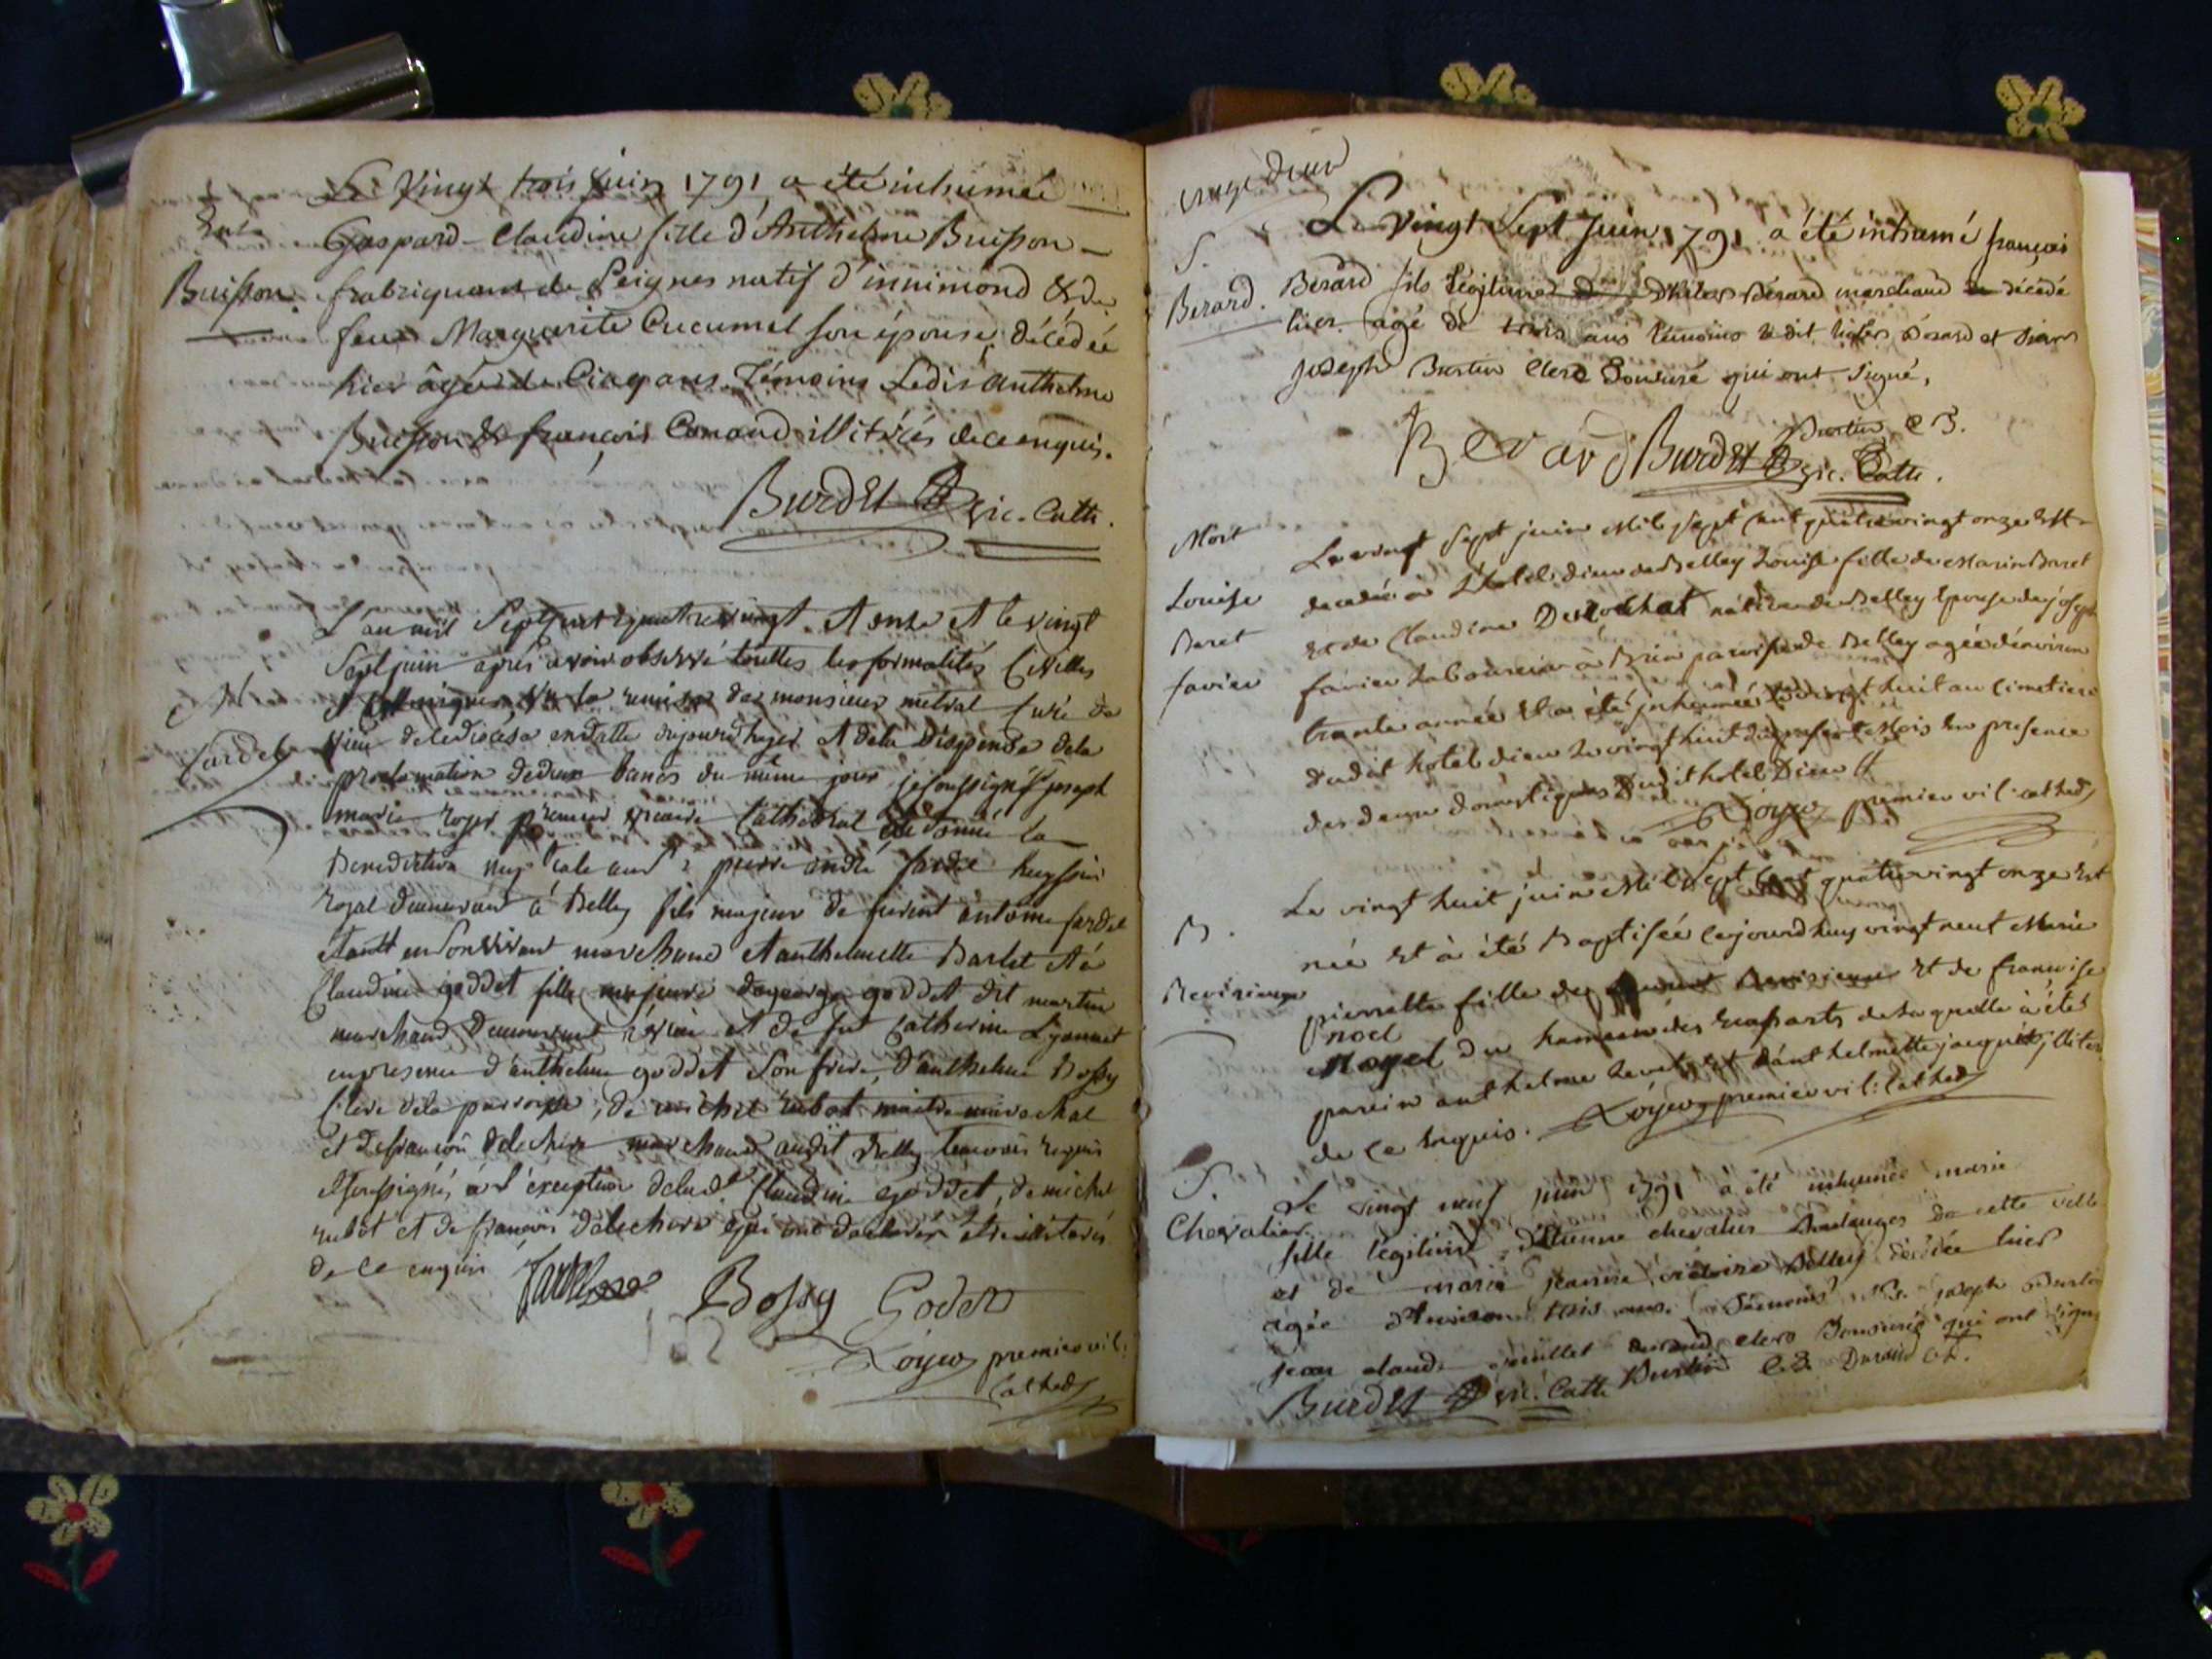 Le Vingt trois juin 1791 a été inhumée
Buisson.
Gaspard-Claudine fille d'Anthelme Buisson
fabriquant de Peignes natif d'innimond & de
feue Marguerite Cucumel son épouse, décédée
hier âgée de Cinq ans. Témoins Ledit Anthelme
Buisson & françois Conand illitérés de ce enquis.
Burdet vic. Cath.
L'an mil Sept cent quatre vingt et onze et le vingt
Sept juin après avoir observé toutes les formalités Civilles
M
fardel
et vu la remise de monsieur metral Curé de
de ce diocèse en datte d'aujourd'huy et de la Dispense de la
proclamation de deux bancs du même jour je soussigné joseph
marie royer premier vicaire Cathedral ai donné la
Benediction nuptiale aud pierre andré fardel huyssier
royal demeurant à Belley fils majeur de furent antoine fardel
étant en son vivant marchand et anthelmette Barlet et à
Claudine goddet fille majeure de george goddet dit martin
marchand demeurant et de fut Catherine Lyonnet
en presence d'anthelme goddet Son frère, d'anthelme Bossy
Clerc de la parroisse, de michel rubat maitre marechal
et de françois delechere marchand audit Belley temoins requis
et soussignés à l'exception de lad.e Claudine goddet, de michel
rubat et de francois delechere qui ont déclarés être illiterés
de ce enquis
fardel Bossy Godet
Royer premier vic:
Cathed
122
page deux
S.
Berard.
Le vingt Sept Juin 1791 a été inhumé françois
Berard fils légitime Bérard marchand décédé
hier agé de trois ans témoins le dit Bérard et
Joseph Burtin Clerc Tonsuré qui ont signé,
Berard Burdet vic. Cath. Burtin
Mort
Louise
Baret
favier
Le vingt sept juin mil sept cent quatrevingt onze est
decedée à l'hotel dieu de Belley Louise fille de Marin Baret
et de Claudine Derochat native de Belley Epouse de joseph
favier Laboureur à Brin paroisse de Belley agée d'environ
trante année et a été inhumée le vingt huit au Cimetiere
dudit hotel dieu Le vingt huit du présent Mois En presence
des deux domestiques Dudit hotel Dieu
Royer premier vic. cathed
B.
Revirieux
Le vingt huit juin Mil Sept Cent quatrevingt onze Est
née Et à été Baptisée Cejourd'huy vingt neuf Marie
pierrette fille de Revirieux Et de francoise
noel
Noyel du hameau des Essarts de Laquelle à été
parein anthelme Et d'anthelmette jacquet jlliteré
de Ce Enquis. Royer premier vic: cathed
S.
Chevalier
Le vingt neuf juin 1791 a été inhumée marie
fille légitime d'Etienne chevalier Boulanger de cette ville
et de marie jeanne victoire Belley décédée hier
agée d'environ trois ans. Témoins Joseph Burtin
jean claude durand clercs Tonsurés qui ont signé
Burdet vic. Cath Burtin Durand